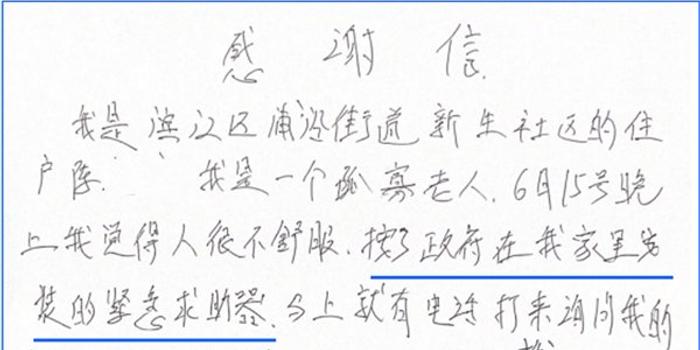 感谢信
我是滨江区浦沿街道新生社区的住
户陈. 我是一个孤寡老人. 6月15号晚
上我觉得人很不舒服. 按了政府在我家里安
装的紧急求助器. 马上就有电话打来询问我的